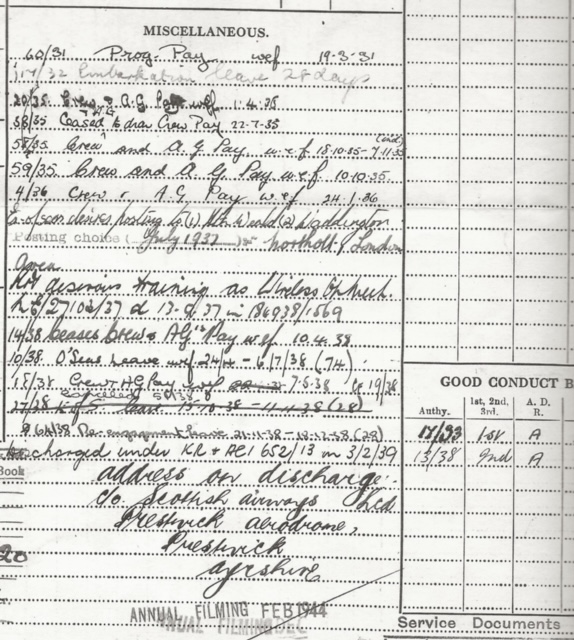 MISCELLANEOUS.
60/31 Prog. Pay wef 19-3-31
/32 Embarkation leave 28 days
20/35 Crew & A.G. Pay wef 1.4.35
38/35 Ceased to draw Crew Pay 22-7-35
58/35 Crew and A G Pay w.e.f 18-10-35 - 7-11-35
59/35 Crew and A G Pay w.e.f 10-10-35
4/36 Crew & A G Pay w.ef 24.1.36
desires posting to (1) (2) Waddington
Posting choice ( July 1937 ) Northolt / London
Area
Not desirous training as Wireless Op
27102/37 d 13-9-37 in 186938/1569
14/38 Ceases Crew & AG Pay w.ef 10.4.38
10/38. O'Seas Leave wef 24/4 - 6/7/38 (74)
18/38 Crew & AG Pay wef 7-5-38 19/38
Cancelled 50/38
27/38 leave 15-10-38 - 11-11-38 (28)
964/38 Re-engagement leave 21-11-38 - 18-12-38 (28)
Discharged under KR & ACI 652/13 on 3/2/39
Book
address on discharge:-
c/o Scottish airways Ltd
Prestwick aerodrome,
Prestwick
20
ayrshire
ANNUAL FILMING FEB 1944
ANNUAL FILMING DEC
GOOD CONDUCT B
Authy. 1st, 2nd, 3rd. A. D. R.
17/33 1st A
13/38 2nd A
Service Documents